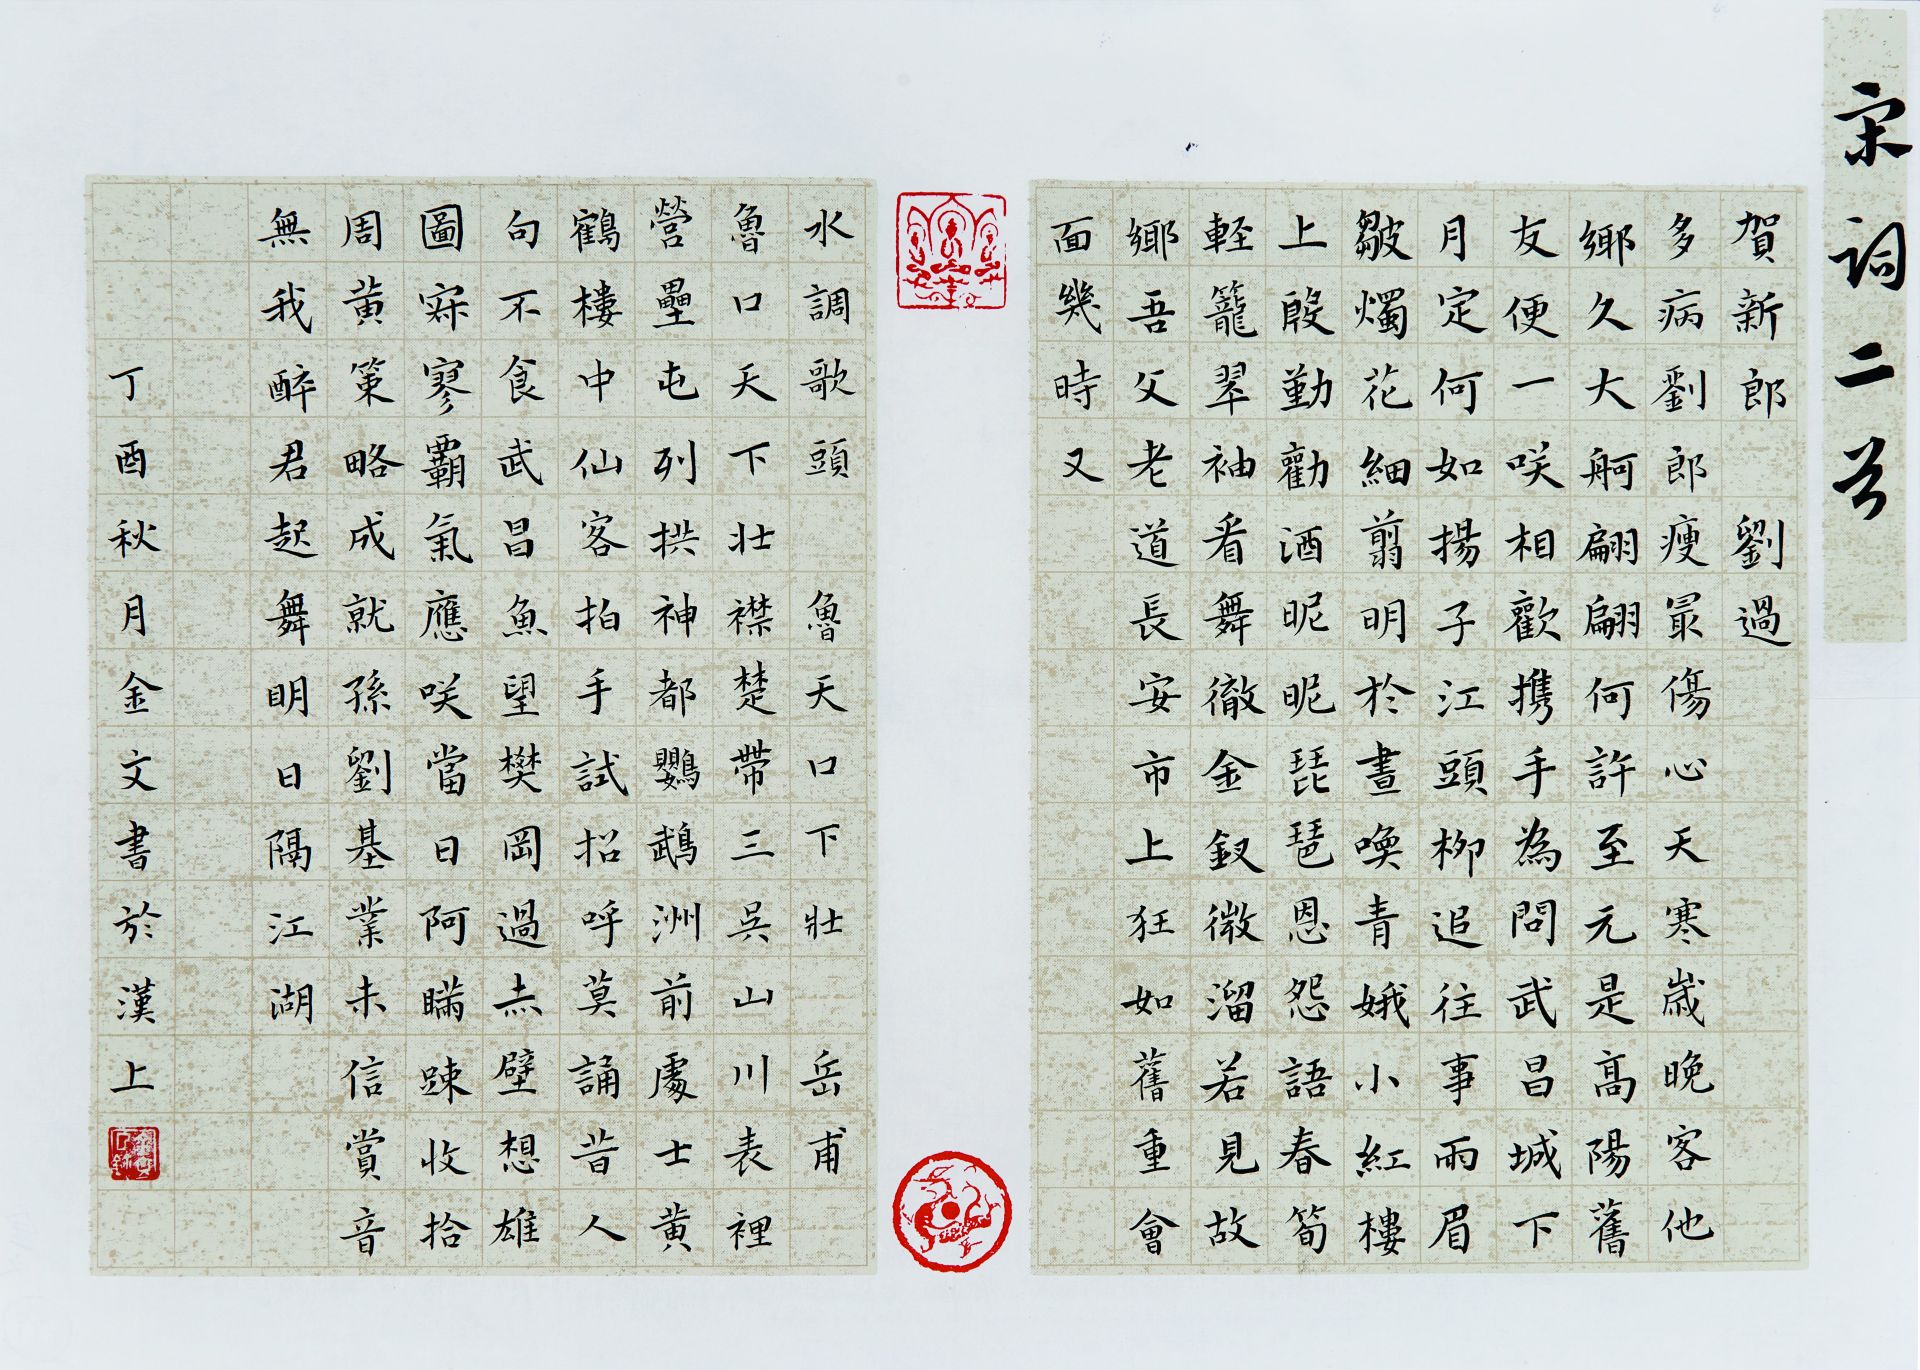 宋词二首
賀新郎 劉過
多病劉郎瘦最傷心天寒歲晚客他
鄉久大舸翩翩何許至元是高陽舊
友便一咲相歡攜手為問武昌城下
月定何如揚子江頭柳追往事雨眉
皺燭花細翦明於晝喚青娥小紅樓
上殷勤勸酒昵昵琵琶恩怨語春筍
軽籠翠袖看舞徹金釵微溜若見故
鄉吾父老道長安市上狂如舊重會
面幾時又
水調歌頭 魯天口下壯 岳甫
魯口天下壯襟楚帶三吳山川表裡
營壘屯列拱神都鸚鵡洲前處士黄
鶴樓中仙客拍手試招呼莫誦昔人
句不食武昌魚望樊岡過赤壁想雄
圖寂寥霸氣應咲當日阿瞞踈收拾
周黄策略成就孫劉基業未信賞音
無我醉君起舞明日隔江湖
丁酉秋月金文書於漢上